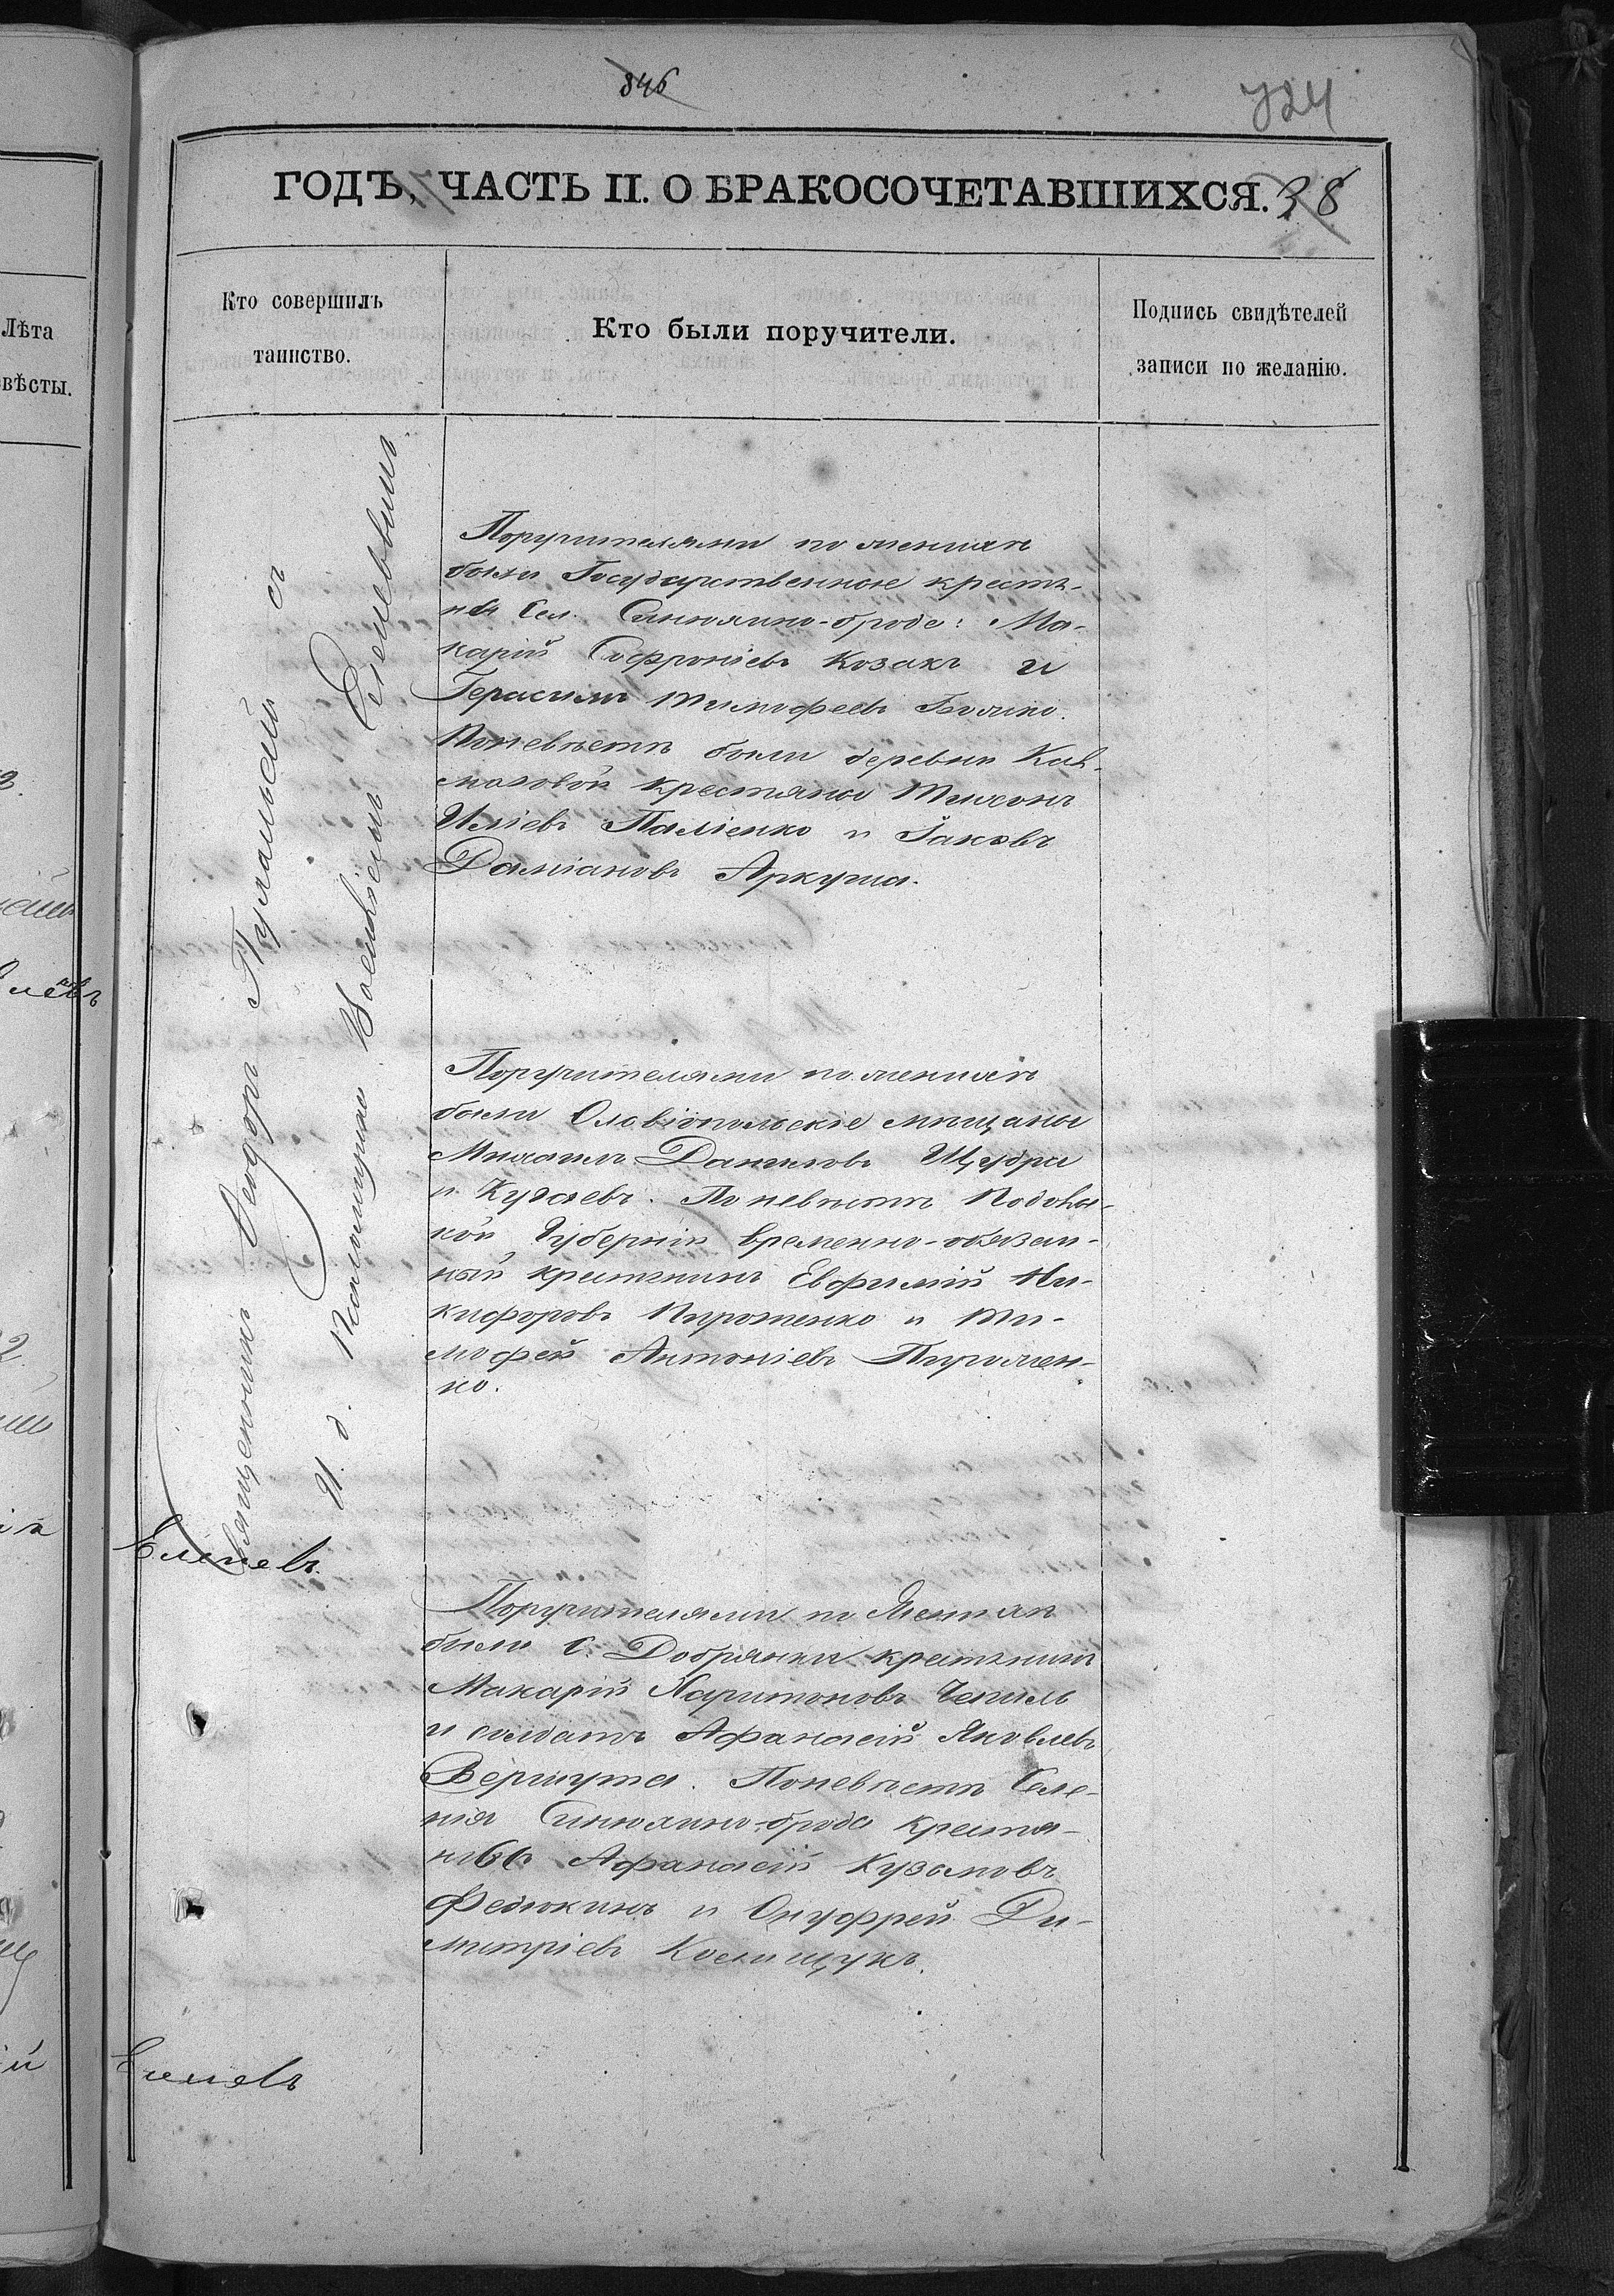 846
724
ГОДЪ, ЧАСТЬ II. О БРАКОСОЧЕТАВШИХСЯ. 38
Лѣта
вѣсты.
Кто совершилъ
таинство.
Кто были поручители.
Подпись свидѣтелей
записи по желанію.
Священникъ Ѳеодоръ съ
И. д. Псаломщика Василіемъ
Поручителями по женихѣ
были Государственные крестья-
не Сел. Синюхино-брода: Ма-
карій Софроніевъ Козакъ и
Герасимъ Тимофеевъ
По невѣстѣ были деревни
крестьяны Тихонъ
Иліевъ Паліенко и Іаковъ
Даміановъ Аркуша.
Поручителями по женихѣ
были Ольвіопольскіе мѣщаны
Михаилъ Даниловъ Щудра
и По невѣстѣ Подоль-
кой Губерніи временно-обязан-
ный крестьянинъ Евфимій Ни-
кифоровъ Пироженко и Ти-
мофей Антоніевъ Пирожен-
ко.
Поручителями по Женихѣ
были С. Добрянки крестьянинъ
Макарій Харитоновъ Чепиль
и солдатъ Афанасій Яковлевъ
По невѣстѣ Селе-
нія Синюхино-брода крестья-
Афанасій Кузьмовъ
Федюкинъ и Онуфрей Ди-
митріевъ